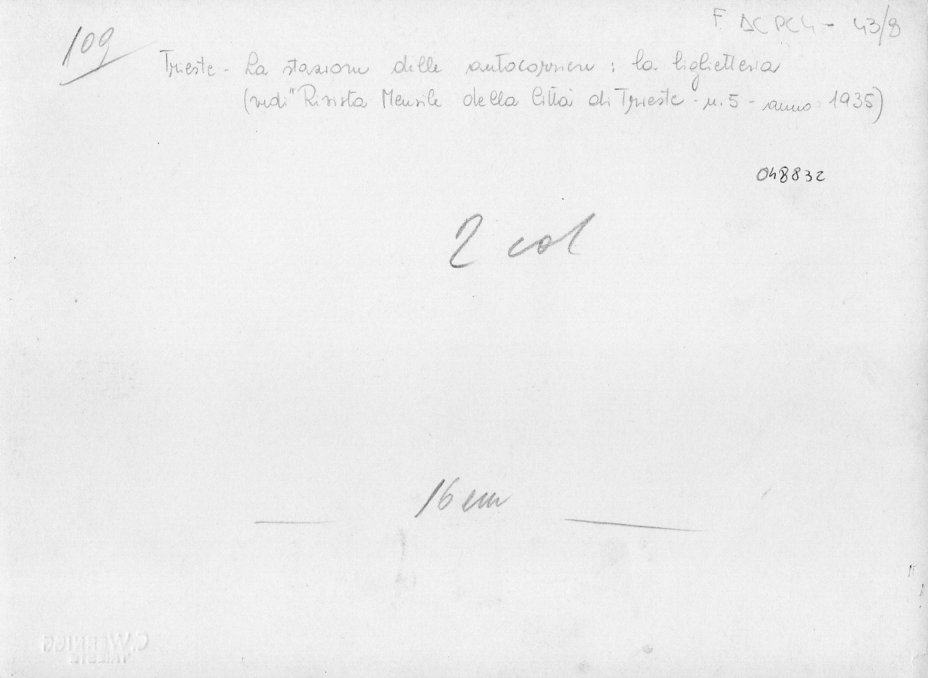 F DC PC4 - 43/8
109
Trieste - La stazione delle autocorriere : la biglietteria
(vedi "Rivista Mensile della Città di Trieste - n. 5 - anno 1935)
048832
2 col
16 cm